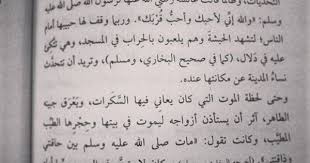 وسلم: «والله إني لأحبك وأحبُّ قُرْبَك». وربما وقف لها حبيبها أمام
الناس؛ لتشهد الحبشة وهم يلعبون بالحراب في المسجد، وهي تتكئ
عليه في دَلال، (كما في صحيح البخاري، ومسلم)، وتريد أن تتحدَّث
نساءُ المدينة عن مكانتها عنده.
وحتى لحظة الموت التي كان يعاني فيها السَّكرات، ويَعْرَق جبينه
الطاهر، آثر أن يستأذن أزواجه ليموت في بيتها وحِجْرِها الطيِّب
المطيَّب، وكانت تقول: «مات صلى الله عليه وسلم بين حاقنتي